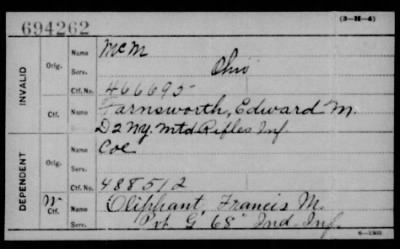 694262
(3-H-4)
INVALID
Orig.
Name McM
Serv. Ohio
Ctf. No. 466695
Ctf. Farnsworth, Edward M.
D 2 N.Y. Mtd Rifles Inf
DEPENDENT
Orig.
Name Coe
Serv.
Ctf. No. 488512
W Ctf. Oliphant, Francis M.
Pvt G 68" Ind. Inf.